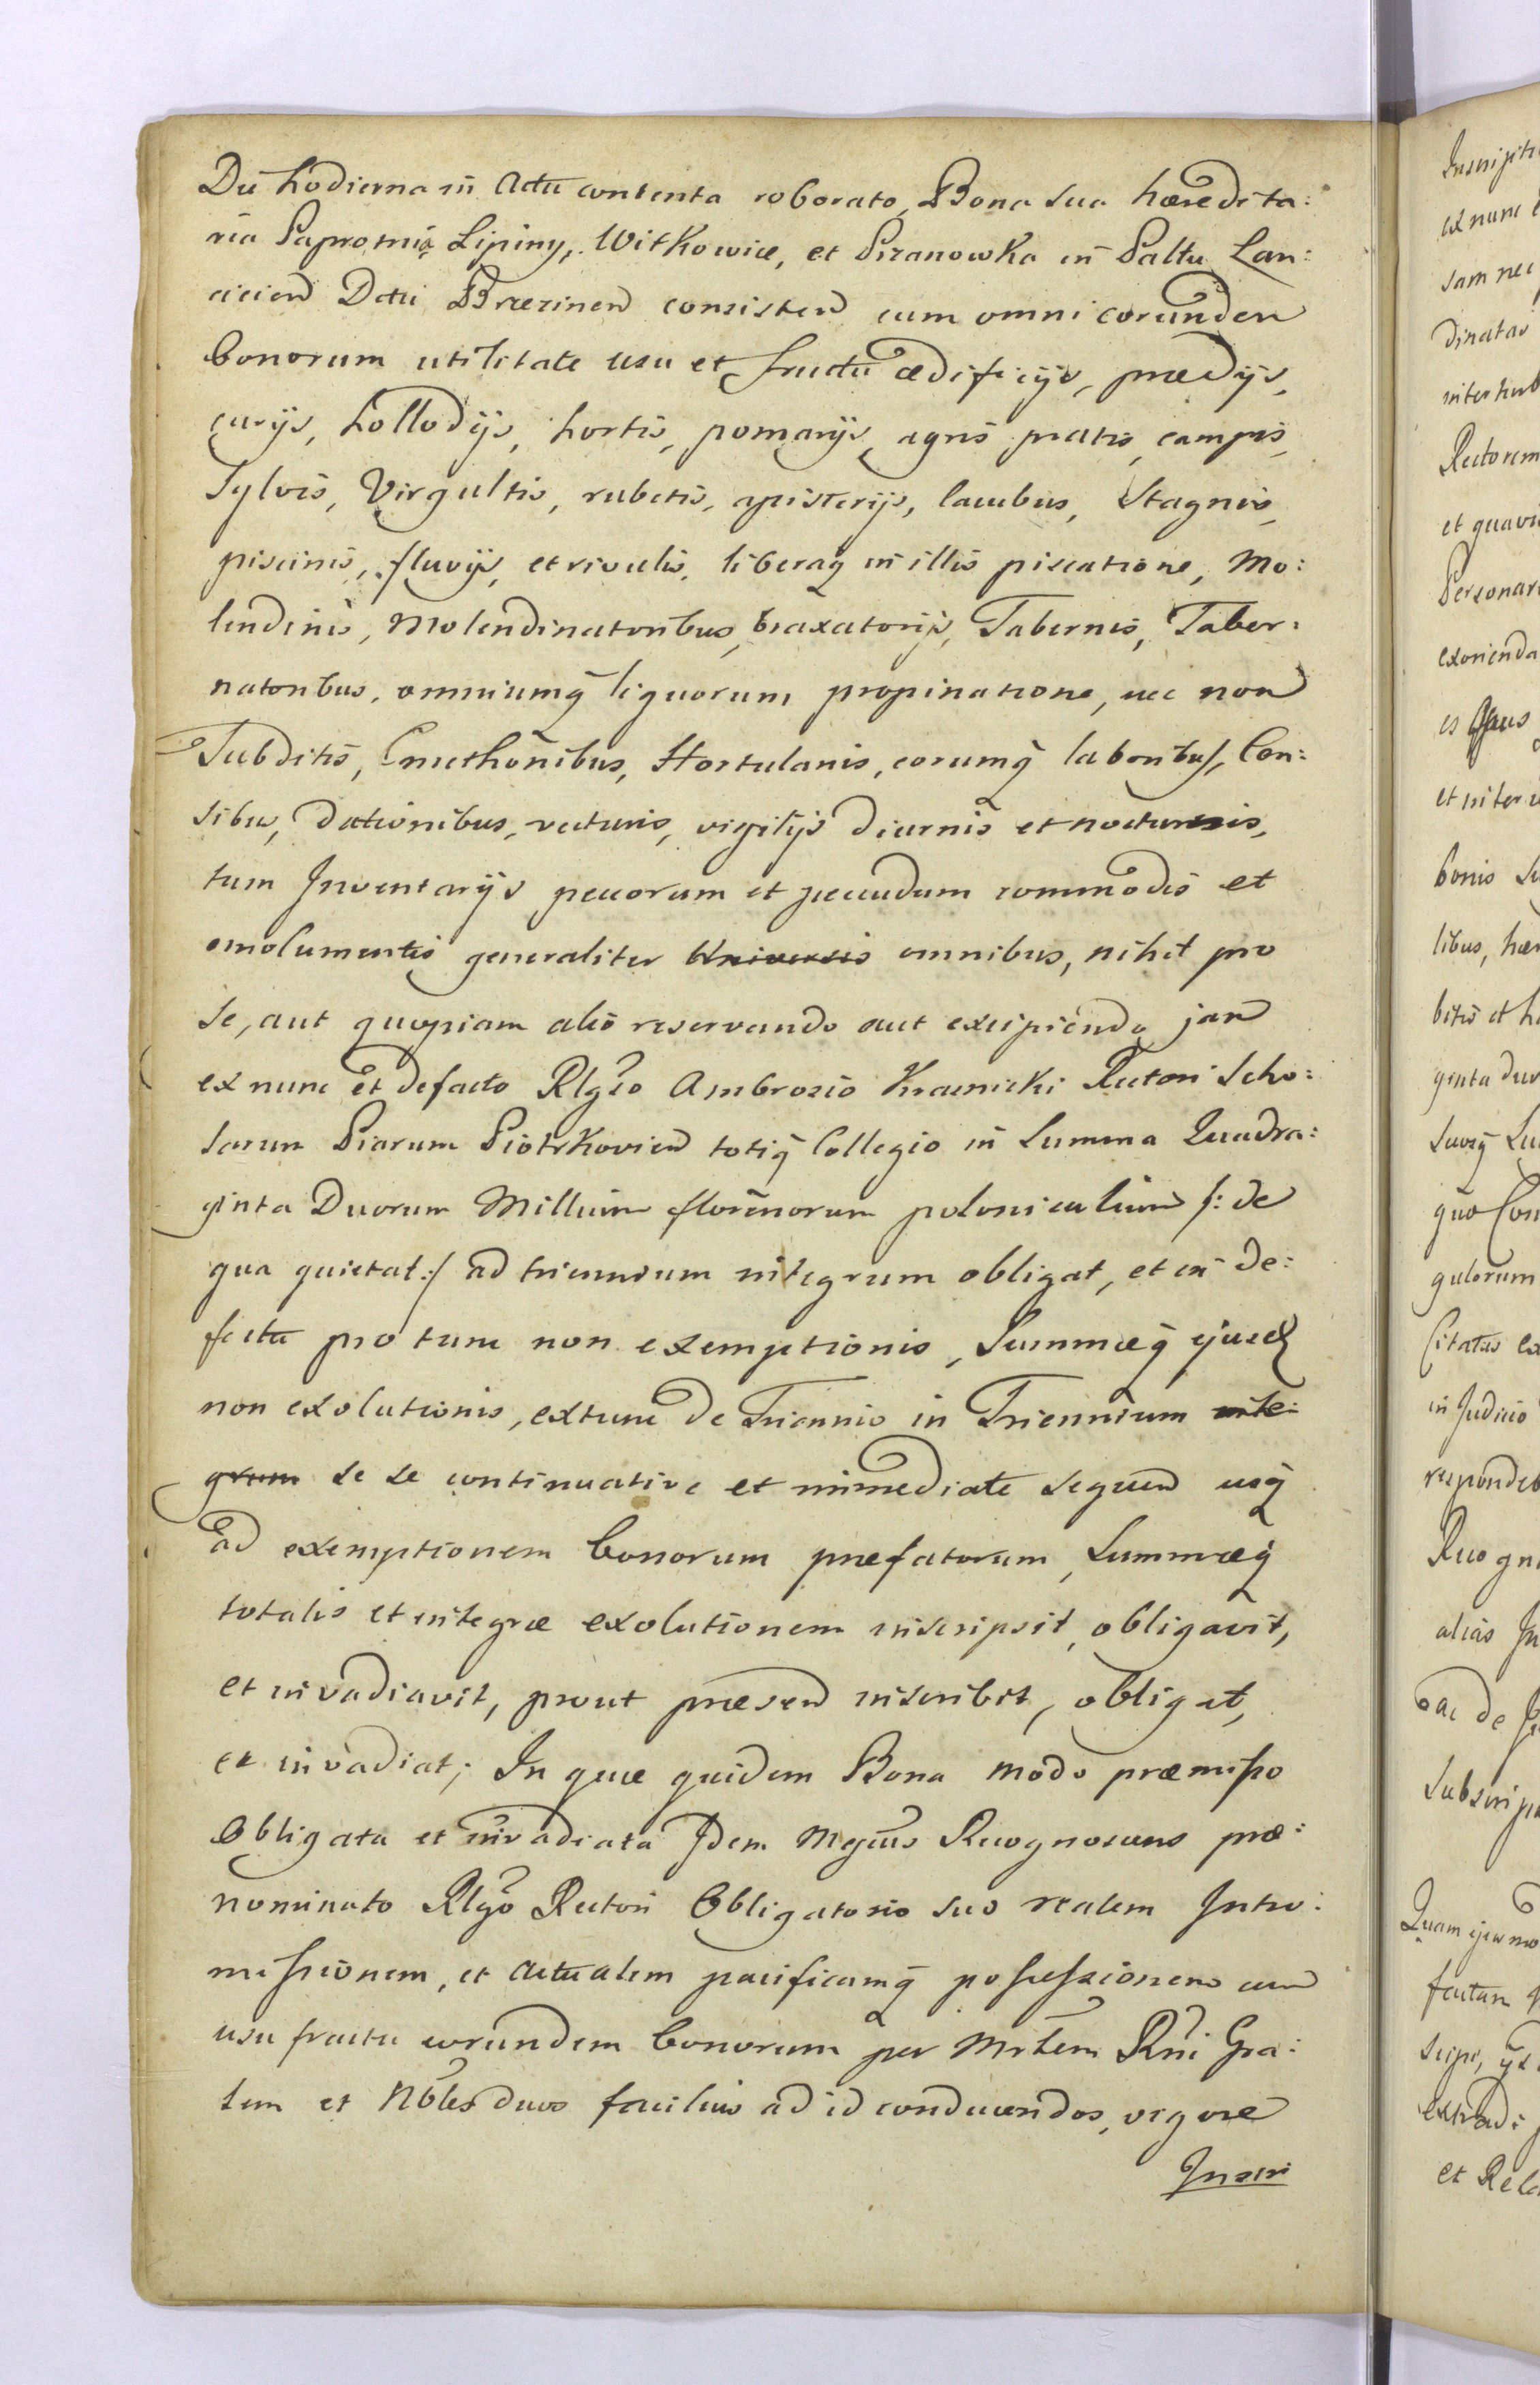 Die hodierna in Actu contenta roborato, Bona sua hæredita:
ria Paprotnia Lipiny, Witkowice, et Pszanowka in Paltu Lan:
cicien Dctu Brzezinen consisten cum omni eorunden
bonorum utilitate usu et fructu ædificijs, prædijs,
curijs, hollodijs, hortis, pomarijs, agris pratis, campis,
Sylvis, Virgultis, rubetis, apisterijs, lacubus, Stagnis,
piscinis, fluvijs, et rivulis, liberaq in illis piscatione, Mo:
lendinis, Molendinatoribus, braxatorijs, Tabernis, Taber:
natoribus, omniumq liquorum propinatione, nec non
Subditis, Cmethonibus, Hortulanis, eorumq laboribus, Cen:
sibus, dationibus, vecturis, vigilijs diurnis et nocturnis,
tum Inventarijs pecorum et pecudum commodis et
emolumentis generaliter Universis omnibus, nihil pro
se, aut quopiam alio reservando aut excipiendo jam
ex nunc et defacto Rlgso Ambrosio Krasnicki Rectori Scho:
larum Piarum Piotrkovien totiq Collegio in Summa Quadra:
ginta Duorum Millium florenorum polonicalium /: de
qua quietat :/ ad triennium integrum obligat, et in de:
fectu pro tunc non exemptionis, Summæq ejusd
non exolutionis, extunc de Triennio in Triennium inte:
grum se se continuative et immediate sequen usq
ad exemptionem bonorum præfatorum, Summæq
totalis et integræ exolutionem inscripsit, obligavit,
et invadiavit, prout præsen inscribit, obligat,
et invadiat; In quæ quidem Bona modo præmisso
Obligata et invadiata Idem Mgcus Recognoscens præ:
nominato Rlgo Rectori Obligatorio suo realem Intro:
missionem, et actualem pacificamq possessionem cum
usufructu eorundem bonorum per Mrlem Rni Gra:
lem et Nobles duos facilius ad id conducendos, vigore
Inscri
Inscripti
ex nunc e
sam nec
dinatas
inter turb
Rectorem
et quavi
Personar
exorienda
et inter
bonis Su
libus, hær
bitis et h
ginta duo
Suorq Su
quo Con
gulorum
Citatus ex
in Judicio
respondeb
Recogn
alias In
ac de
Subscrip
Quam ejusmo
factam
extrad:
et Rela